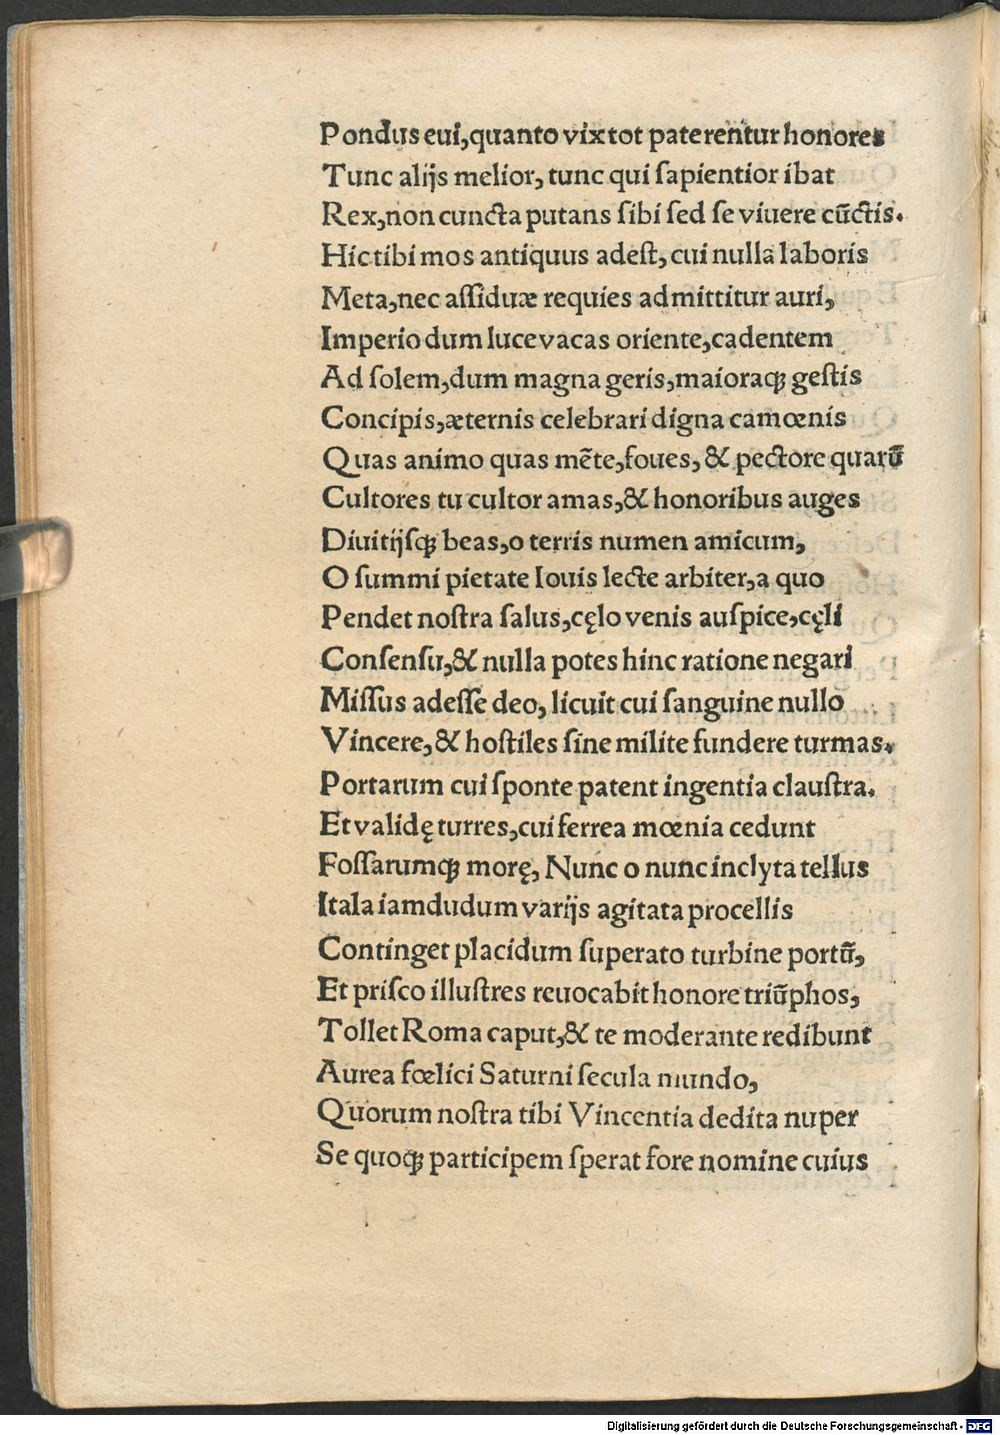 Pondus eui, quanto vix tot paterentur honores
Tunc alijs melior, tunc qui ſapientior ibat
Rex, non cuncta putans ſibi ſed ſe viuere cũctis.
Hic tibi mos antiquus adeſt, cui nulla laboris
Meta, nec aſſiduæ requies admittitur auri,
Imperio dum luce vacas oriente, cadentem
Ad ſolem, dum magna geris, maioraqꝫ geſtis
Concipis, æternis celebrari digna camœnis
Quas animo quas mẽte, foues, & pectore quarũ
Cultores tu cultor amas, & honoribus auges
Diuitijſqꝫ beas, o terris numen amicum,
O ſummi pietate Iouis lecte arbiter, a quo
Pendet noſtra ſalus, cęlo venis auſpice, cęli
Conſenſu, & nulla potes hinc ratione negari
Miſſus adeſſe deo, licuit cui ſanguine nullo
Vincere, & hoſtiles ſine milite fundere turmas.
Portarum cui ſponte patent ingentia clauſtra.
Et validę turres, cui ferrea mœnia cedunt
Foſſarumqꝫ morę, Nunc o nunc inclyta tellus
Itala iamdudum varijs agitata procellis
Continget placidum ſuperato turbine portũ,
Et priſco illuſtres reuocabit honore triũphos,
Tollet Roma caput, & te moderante redibunt
Aurea fœlici Saturni ſecula mundo,
Quorum noſtra tibi Vincentia dedita nuper
Se quoqꝫ participem ſperat fore nomine cuius
Digitalisierung gefördert durch die Deutsche Forschungsgemeinschaft - DFG